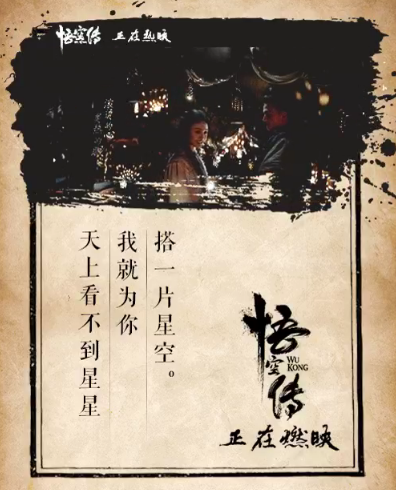 悟空传 正在热映
天上看不到星星
我就为你
搭一片星空。
悟空传
WU
KONG
正在燃映